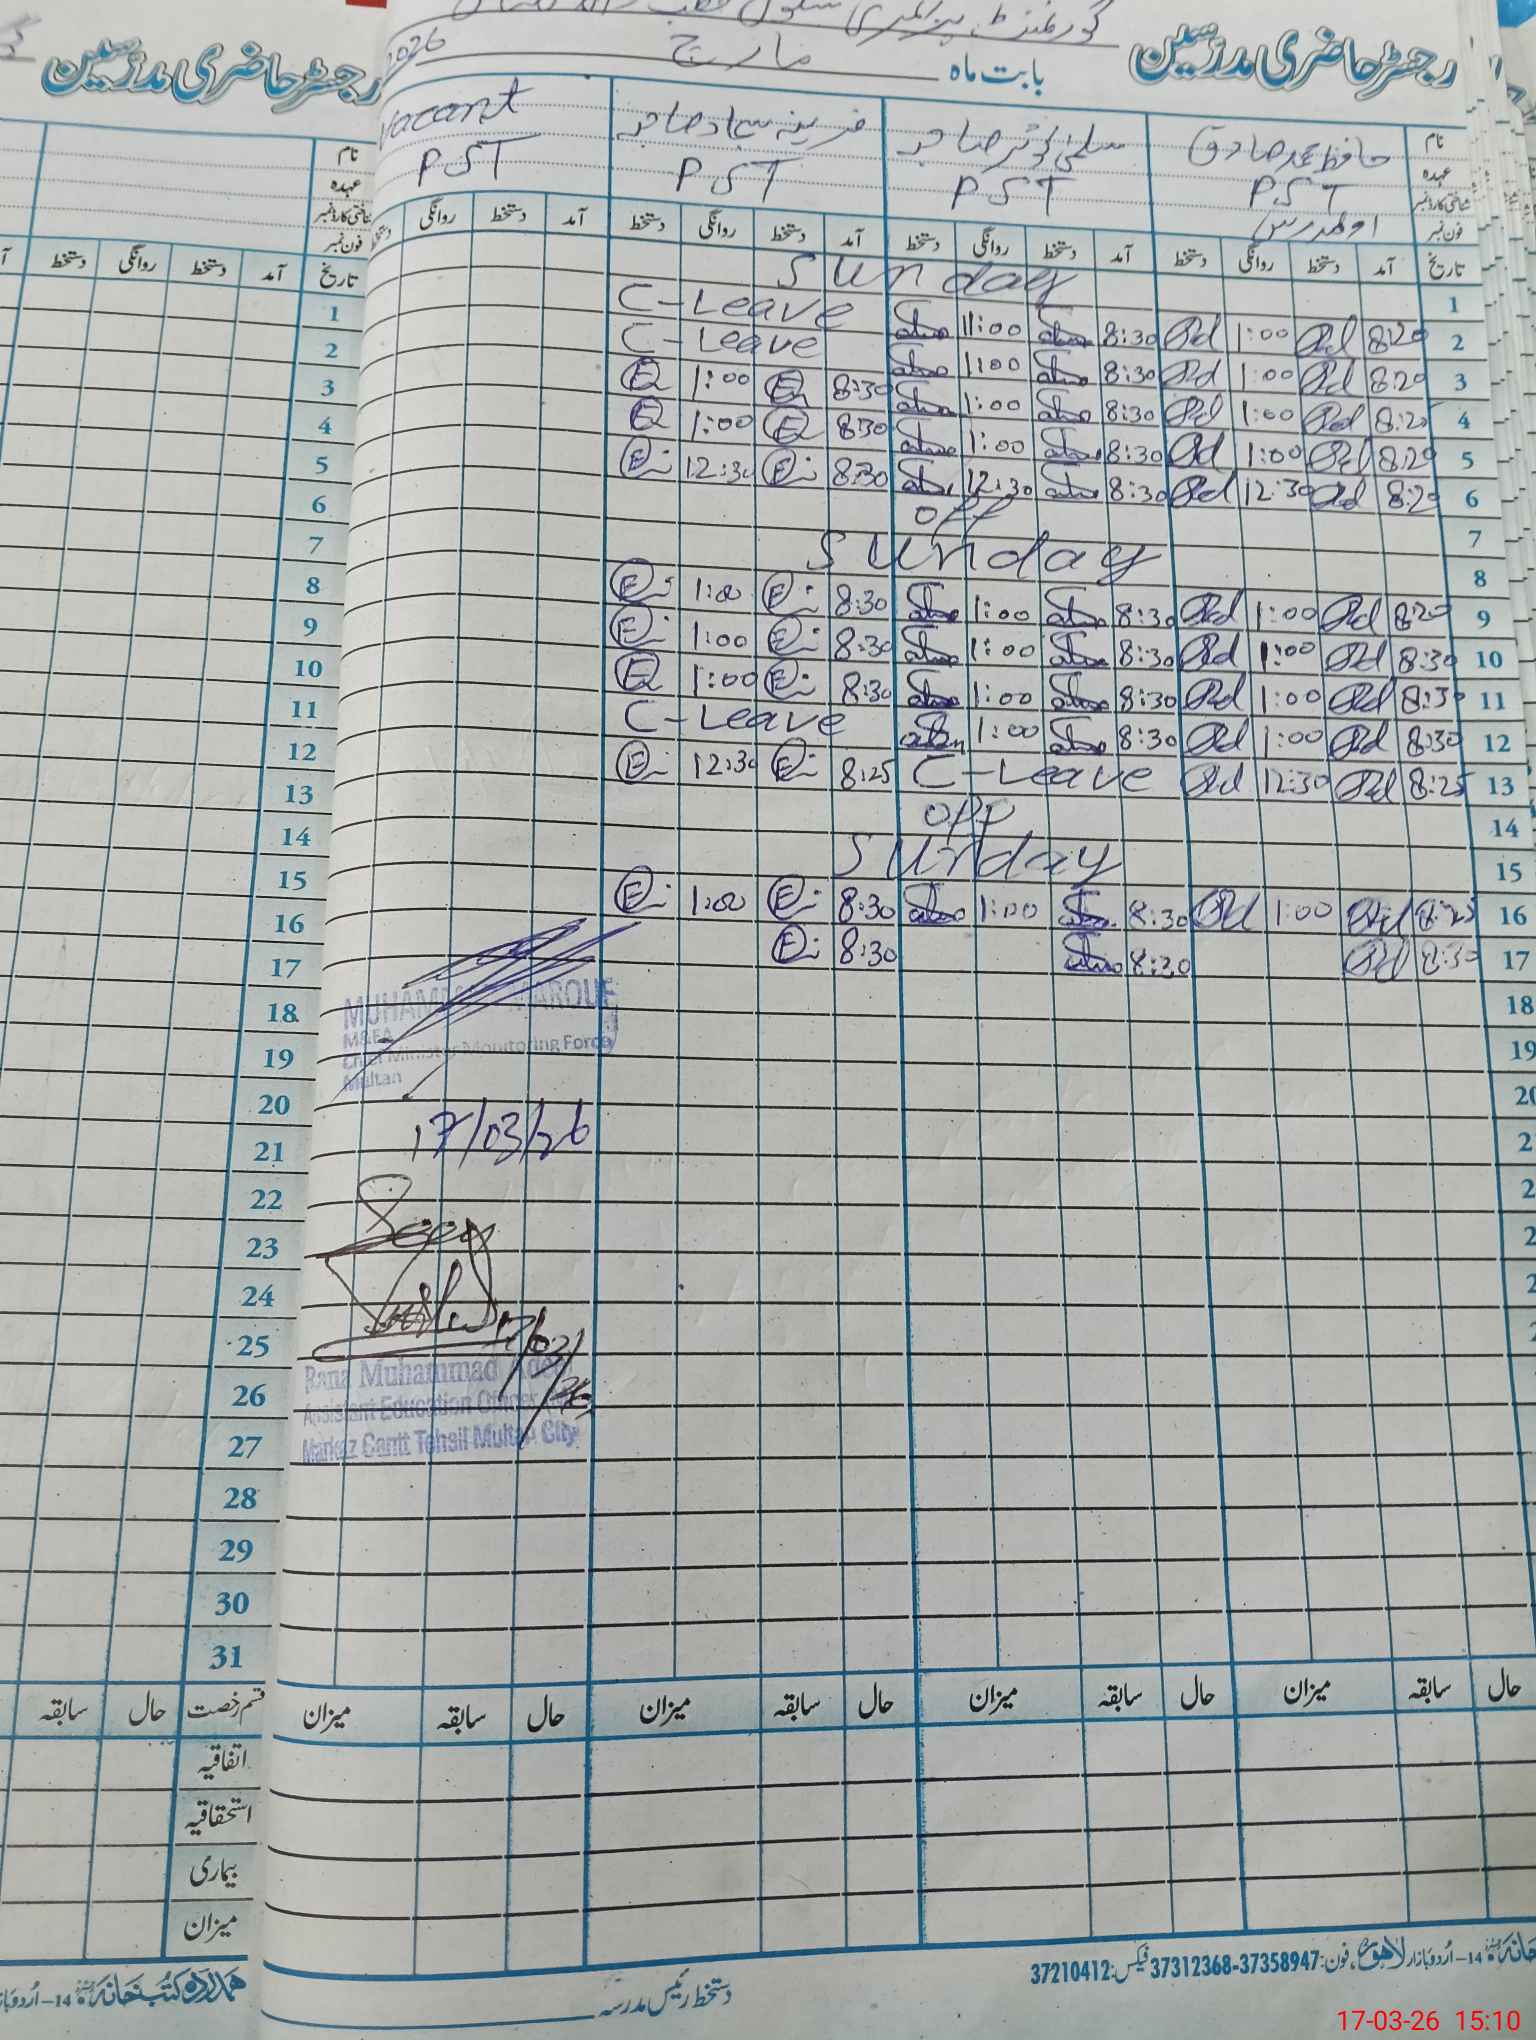 رجسٹر حاضری مدرسین
گورنمنٹ پرائمری سکول
بابت ماہ مارچ 2026
نام حافظ محمد صادق سلمیٰ کوثر صاحبہ Vacant
عہدہ PST PST PST PST
شناختی کارڈ نمبر
فون نمبر
تاریخ آمد دستخط روانگی دستخط آمد دستخط روانگی دستخط آمد دستخط روانگی دستخط آمد دستخط روانگی
1 Sunday
2 8:20 1:00 8:30 11:00 C-Leave
3 8:20 1:00 8:30 1:00 C-Leave
4 8:20 1:00 8:30 1:00 8:30 1:00
5 8:20 1:00 8:30 1:00 8:30 1:00
6 8:20 12:30 8:30 12:30 8:30 12:30
7 off
8 Sunday
9 8:20 1:00 8:30 1:00 8:30 1:00
10 8:30 1:00 8:30 1:00 8:30 1:00
11 8:30 1:00 8:30 1:00 8:30 1:00
12 8:30 1:00 8:30 1:00 C-Leave
13 8:25 12:30 C-Leave 8:25 12:30
14 off
15 Sunday
16 8:25 1:00 8:30 1:00 8:30 1:00
17 8:30 8:30 8:30
18
19
MUHAMMAD
M&EA
Chief Minister Monitoring Force
Multan
17/03/26
Seen
17/03/26
Rana Muhammad
Assistant Education Officer
Markaz Cantt Tehsil Multan City
حال سابقہ میزان حال سابقہ میزان حال سابقہ میزان حال سابقہ میزان
دستخط رئیس مدرسہ
14-اُردو بازار لاہور، فون: 37358947-37312368 فیکس: 37210412
رجسٹر حاضری مدرسین
نام
عہدہ
شناختی کارڈ نمبر
فون نمبر
تاریخ آمد دستخط روانگی دستخط
1
2
3
4
5
6
7
8
9
10
11
12
13
14
15
16
17
18
19
20
21
22
23
24
25
26
27
28
29
30
31
قسم رخصت حال سابقہ
اتفاقیہ
استحقاقیہ
بیماری
میزان
ہمدرد کتب خانہ 14-اُردو بازار
17-03-26 15:10